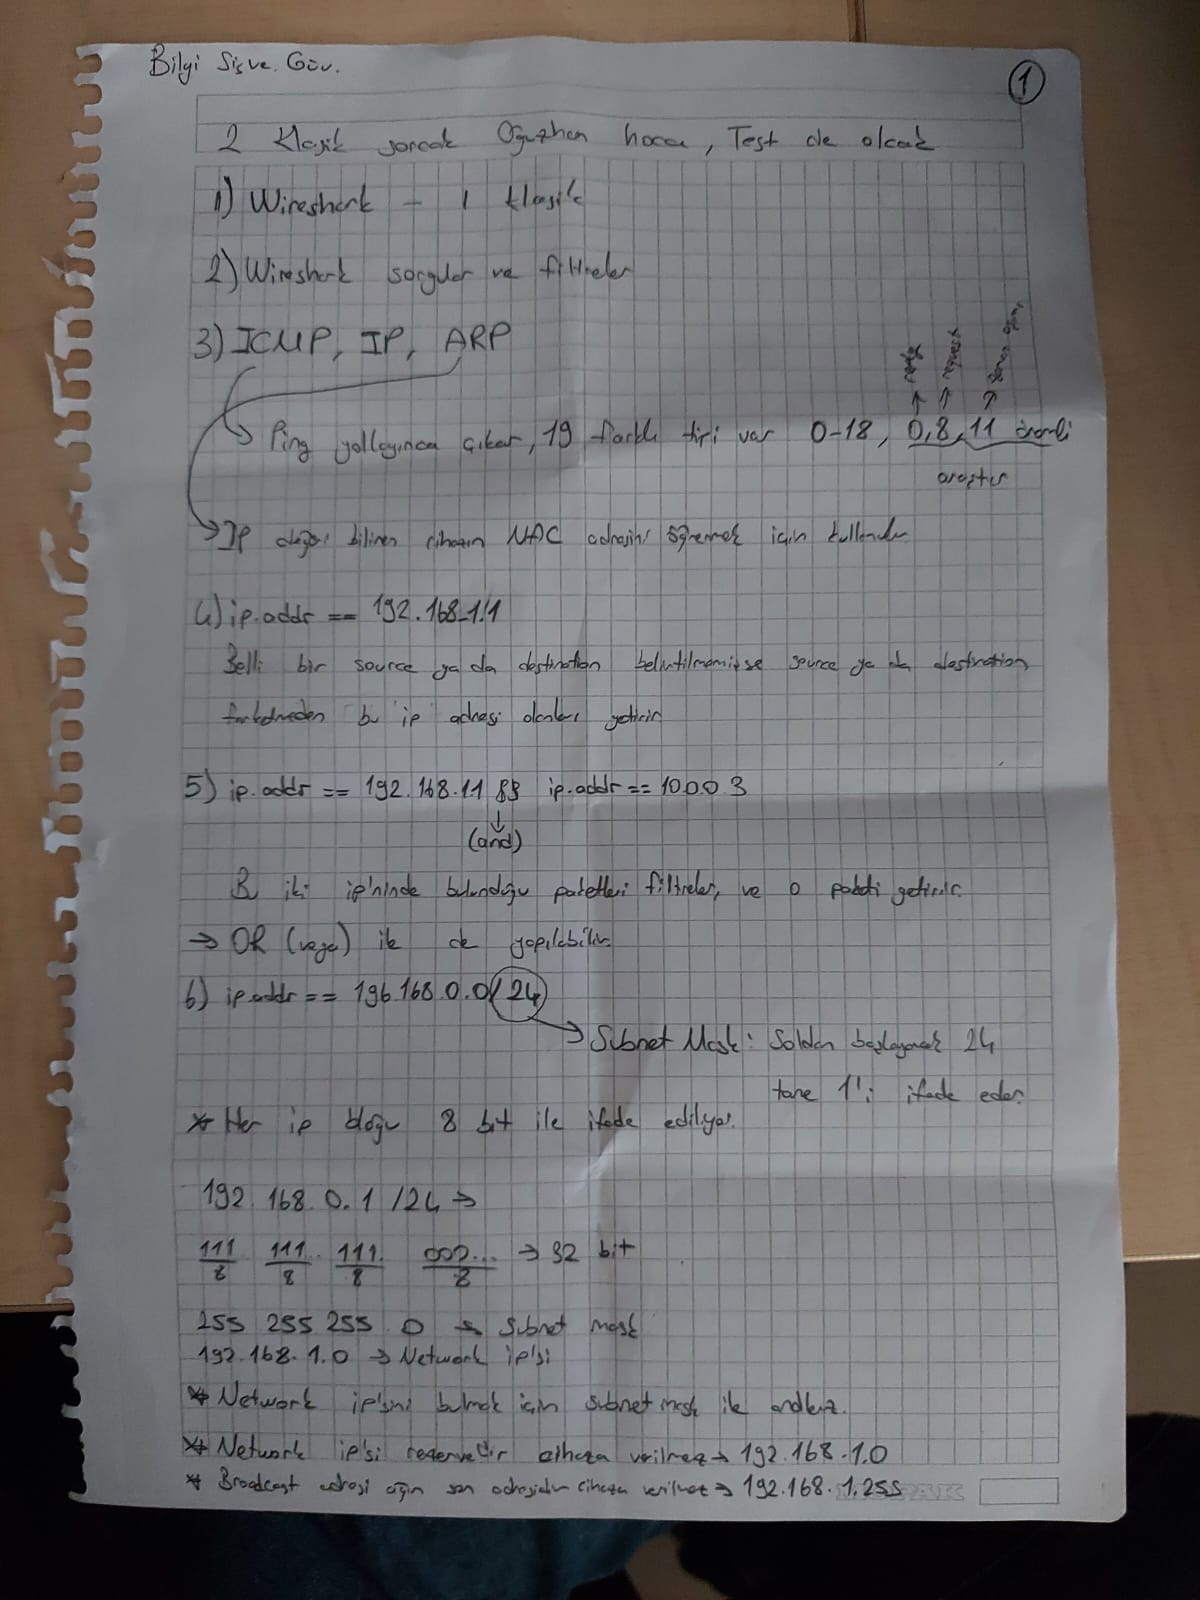 Bilgi Sis ve. Güv.
1
2 klasik sorcak Oğuzhan hoca, Test de olcak
1) Wireshark - 1 klasik
2) Wireshark sorgular ve filtreler
3) ICMP, IP, ARP
reply request
Ping yollayınca çıkar, 19 farklı türü var 0-18, 0,8,11 önemli
araştır
IP değeri bilinen cihazın MAC adresini öğrenmek için kullanılır
4) ip.addr == 192.168.1.1
Belli bir source ya da destination belirtilmemişse source ya da destination
farketmeden bu ip adresi olanları getirir
5) ip.addr == 192.168.1.1 && ip.addr == 10.0.0.3
(and)
Bu iki ip'ninde bulunduğu paketleri filtreler, ve o paketi getirir.
→ OR (veya) ile de yapılabilir.
6) ip.addr == 196.168.0.0/24
→ Subnet Mask: Soldan başlayarak 24
tane 1'i ifade eder.
* Her ip bloğu 8 bit ile ifade ediliyor.
192.168.0.1 /24 →
111 111.. 111. 000... → 32 bit
8 8 8 8
255 255 255 . 0 → Subnet mask
192.168.1.0 → Network ip'si
* Network ip'sini bulmak için subnet mask ile andleriz.
* Network ip'si rezervedir cihaza verilmez → 192.168.1.0
* Broadcast adresi ağın son adresidir cihaza verilmez → 192.168.1.255